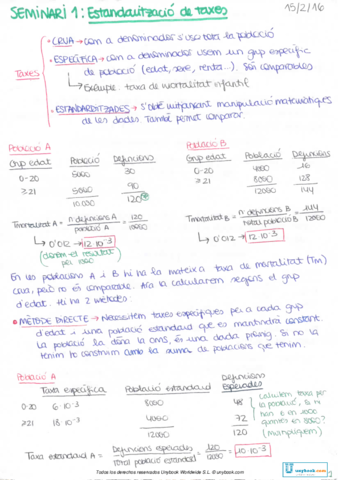 SEMINARI 1: Estandarització de taxes 15/2/16
Taxes
• CRUA → com a denominador s'usa tota la població
• ESPECÍFICA → com a denominador usem un grup específic
de població (edat, sexe, renta...). Són comparables
↳ Exemple: taxa de mortalitat infantil
• ESTANDARDITZADES → s'obté mitjançant manipulació matemàtiques
de les dades. També permet comparar.
POBLACIÓ A
Grup edat Població Defuncions
0-20 5000 30
≥21 5000 90
10000 120
Tmortalitat A = nº defuncions A / població A = 120 / 10000
↳ 0'012 → 12·10⁻³
(donem el resultat
per 1000)
POBLACIÓ B
Grup edat Població Defuncions
0-20 4000 16
≥21 8000 128
12000 144
Tmortalitat B = nº defuncions B / total població B = 144 / 12000
↳ 0'012 → 12·10⁻³
En les poblacions A i B hi ha la mateixa taxa de mortalitat (TM)
crua, però no és comparable. Ara la calcularem segons el grup
d'edat. Hi ha 2 mètodes:
• MÈTODE DIRECTE → Necessitem taxes específiques per a cada grup
d'edat i una població estandard que es mantindrà constant.
La població la dóna la OMS, és una dada prèvia. Si no la
tenim la construim com a la suma de poblacions que tenim.
Població A
Taxa específica Població estandard Defuncions esperades
0-20 6·10⁻³ 8000 48
≥21 18·10⁻³ 4000 72
12000 120
calculem taxa per
la població, si n
han 6 en 1000
quantes en 8000?
(multipliquem)
Taxa estandard A = Defuncions esperades / Total població estandard = 120 / 12000 = 10·10⁻³
Todos los derechos reservados Unybook Worldwide S.L. @ unybook.com
unybook.com